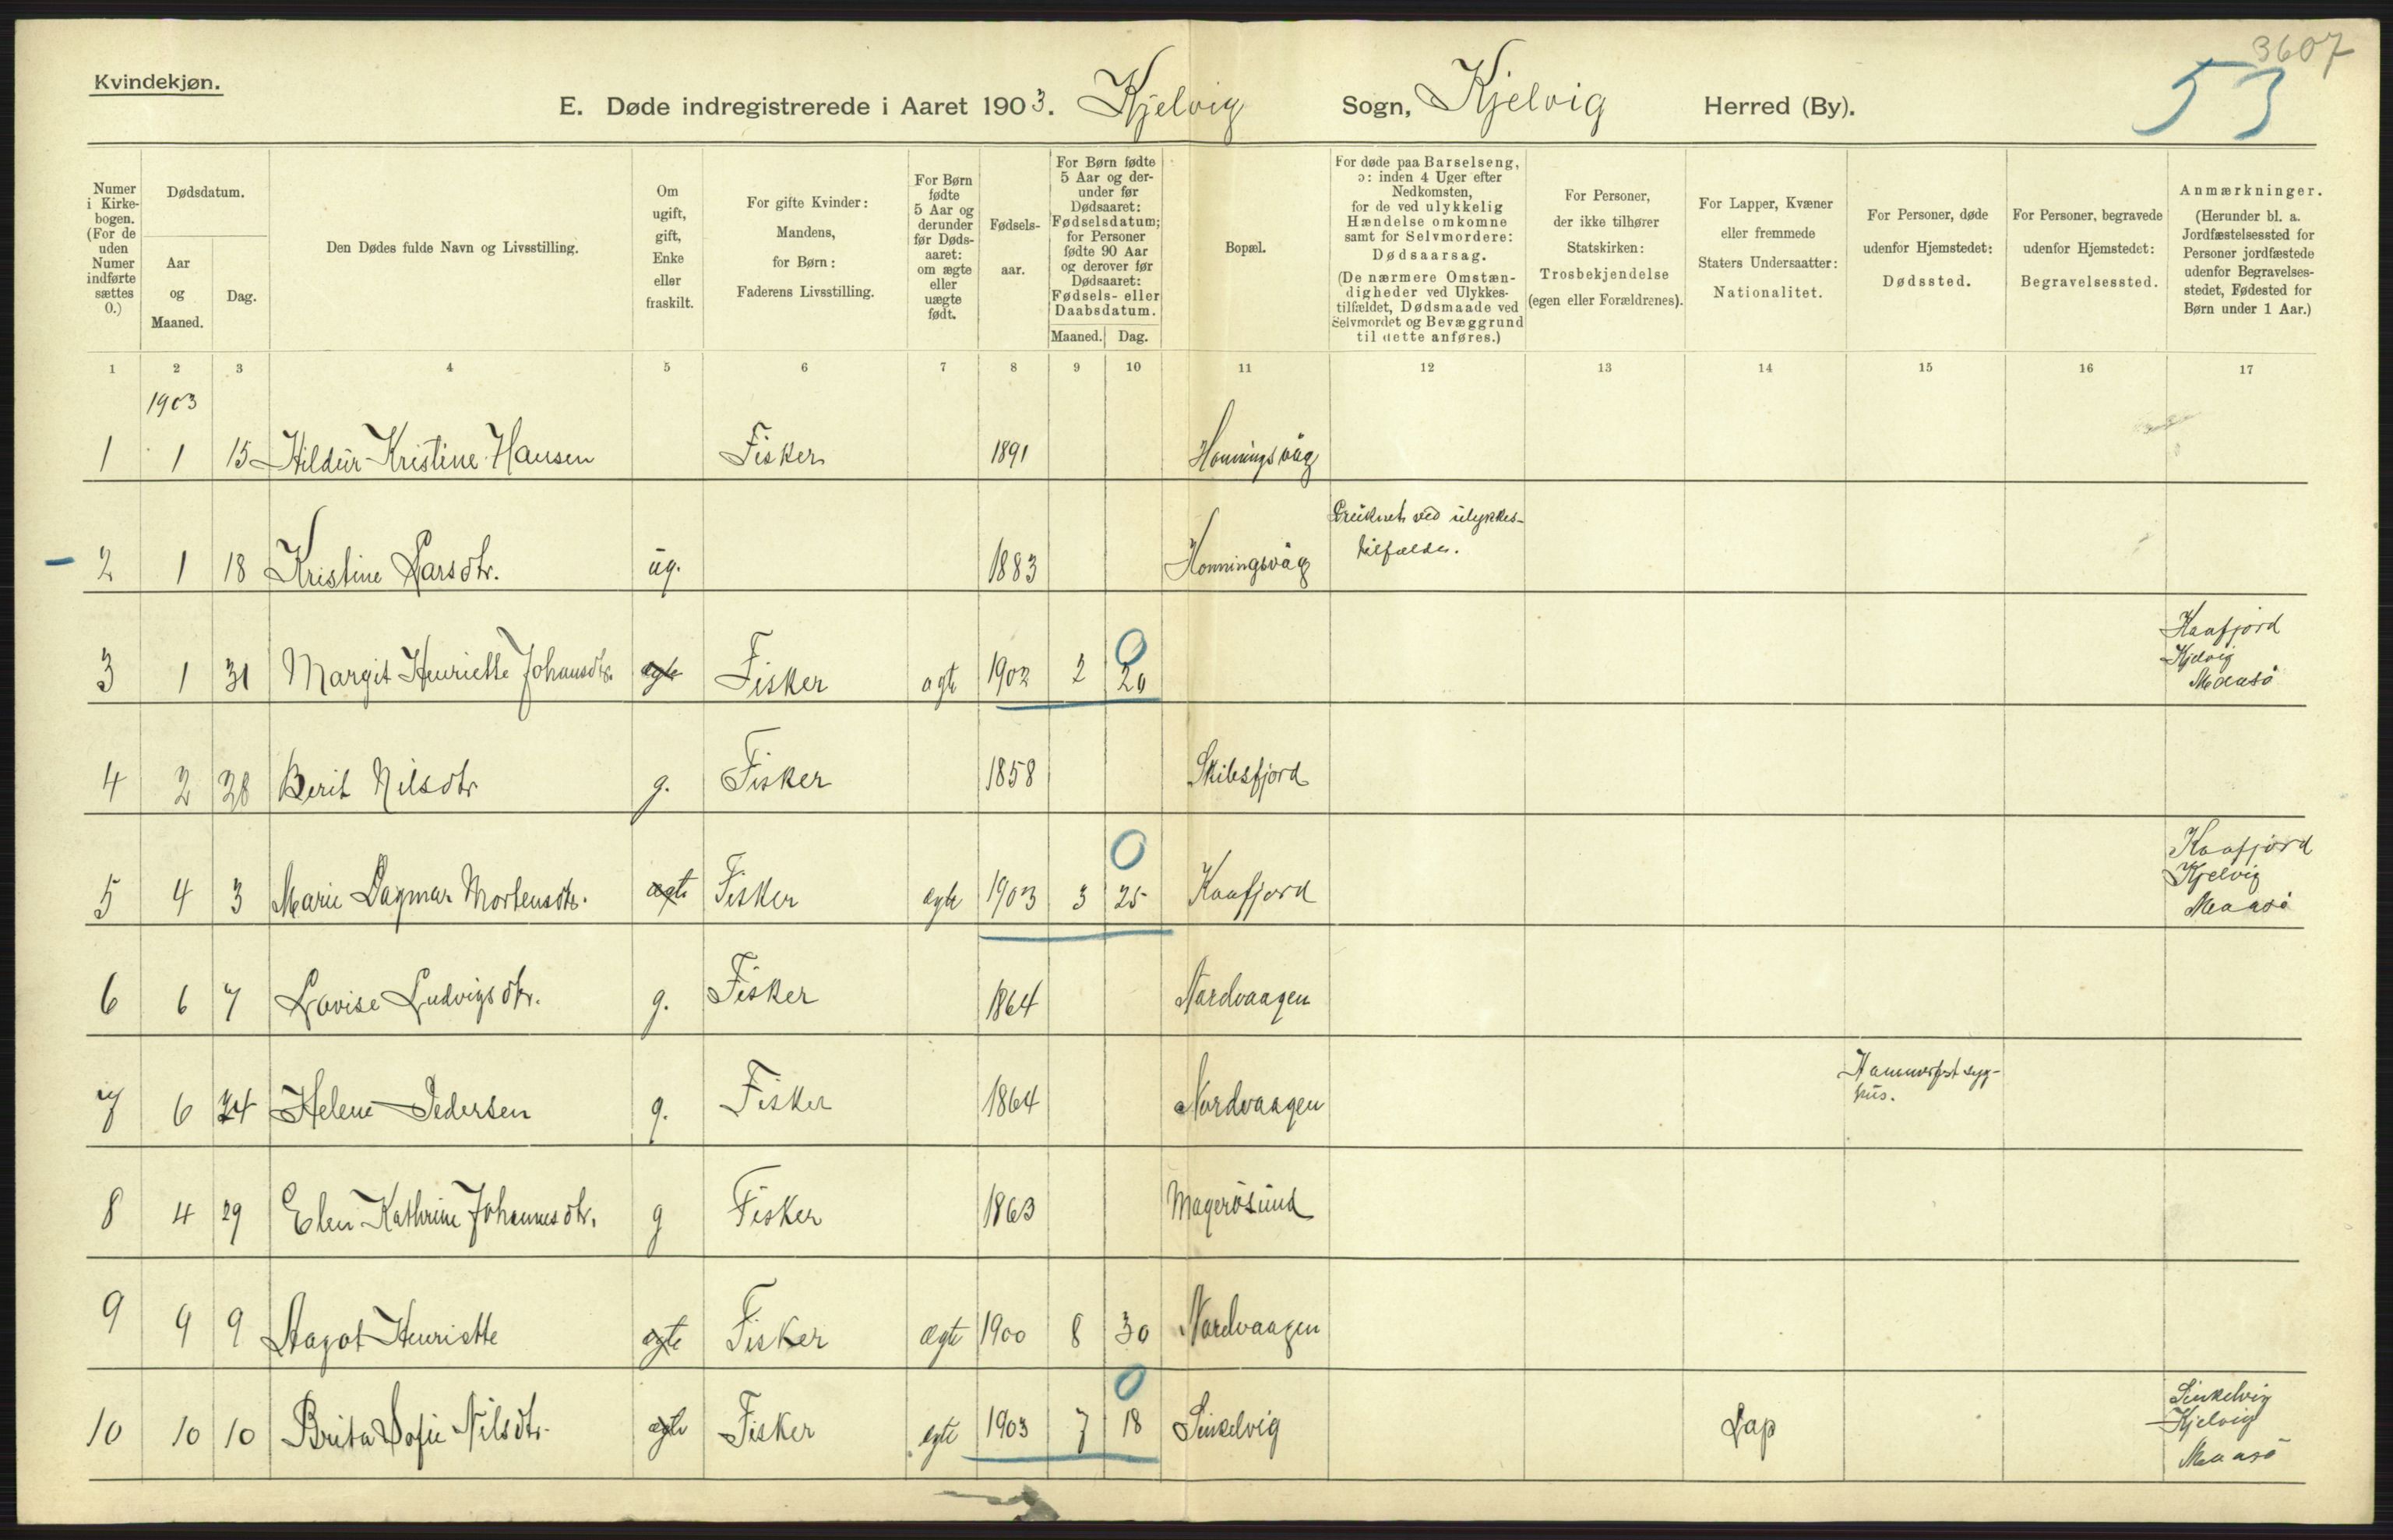 3607
53
Kvindekjøn.
E. Døde indregistrerede i Aaret 1903. Kjelvig Sogn, Kjelvig Herred (By).
Numer i Kirkebogen. (For de uden Numer indførte sættes 0.)
Dødsdatum.
Aar og Maaned.
Dag.
Den Dødes fulde Navn og Livsstilling.
Om ugift, gift, Enke eller fraskilt.
For gifte Kvinder: Mandens, for Børn: Faderens Livsstilling.
For Børn fødte 5 Aar og derunder før Dødsaaret: om ægte eller uægte født.
Fødselsaar.
For Børn fødte 5 Aar og derunder før Dødsaaret: Fødselsdatum; for Personer fødte 90 Aar og derover før Dødsaaret: Fødsels- eller Daabsdatum.
Maaned. Dag.
Bopæl.
For døde paa Barselseng, ɔ: inden 4 Uger efter Nedkomsten, for de ved ulykkelig Hændelse omkomne samt for Selvmordere: Dødsaarsag. (De nærmere Omstændigheder ved Ulykkestilfældet, Dødsmaade ved Selvmordet og Bevæggrund til dette anføres.)
For Personer, der ikke tilhører Statskirken: Trosbekjendelse (egen eller Forældrenes).
For Lapper, Kvæner eller fremmede Staters Undersaatter: Nationalitet.
For Personer, døde udenfor Hjemstedet: Dødssted.
For Personer, begravede udenfor Hjemstedet: Begravelsessted.
Anmærkninger. (Herunder bl. a. Jordfæstelsessted for Personer jordfæstede udenfor Begravelsesstedet, Fødested for Børn under 1 Aar.)
1 2 3 4 5 6 7 8 9 10 11 12 13 14 15 16 17
1903
1 1 15 Hildur Kristine Hansen Fisker 1891 Honningsvåg
2 1 18 Kristine Larsdtr. ug. 1883 Honningsvåg Druknet ved ulykkes-
tilfælde.
3 1 31 Margit Henriette Johansdtr. ægte Fisker ægte 1902 2 20 0 Kaafjord
Kjelvig
Maasö
4 2 28 Berit Nilsdtr g. Fisker 1858 Skibsfjord
5 4 3 Marie Dagmar Mortensdtr. ægte Fisker ægte 1903 3 25 0 Kaafjord Kaafjord
Kjelvig
Maasö
6 6 7 Lovise Ludvigsdtr. g. Fisker 1864 Nordvaagen
7 6 24 Helene Pedersen g. Fisker 1864 Nordvaagen Hammerfest syg-
hus.
8 4 29 Elen Kathrine Johannesdtr. g Fisker 1863 Magerösund
9 9 9 Aagot Henriette ægte Fisker ægte 1900 8 30 Nordvaagen
10 10 10 Brita Sofie Nilsdtr. ægte Fisker ægte 1903 7 18 0 Lap
Kjelvig
Maasö